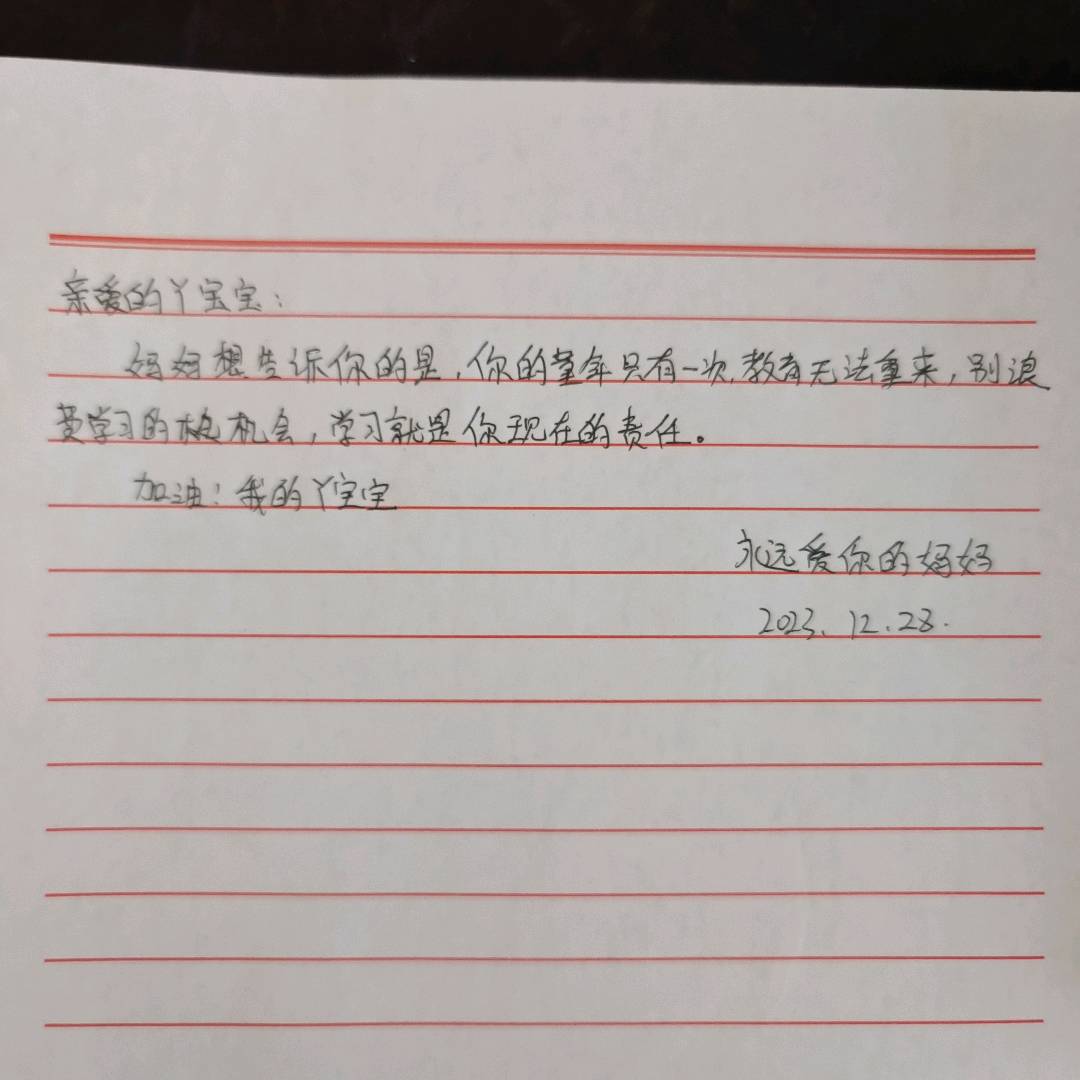 亲爱的丫宝宝：
妈妈想告诉你的是，你的童年只有一次，教育无法重来，别浪
费学习的机会，学习就是你现在的责任。
加油！我的丫宝宝
永远爱你的妈妈
2023.12.28.